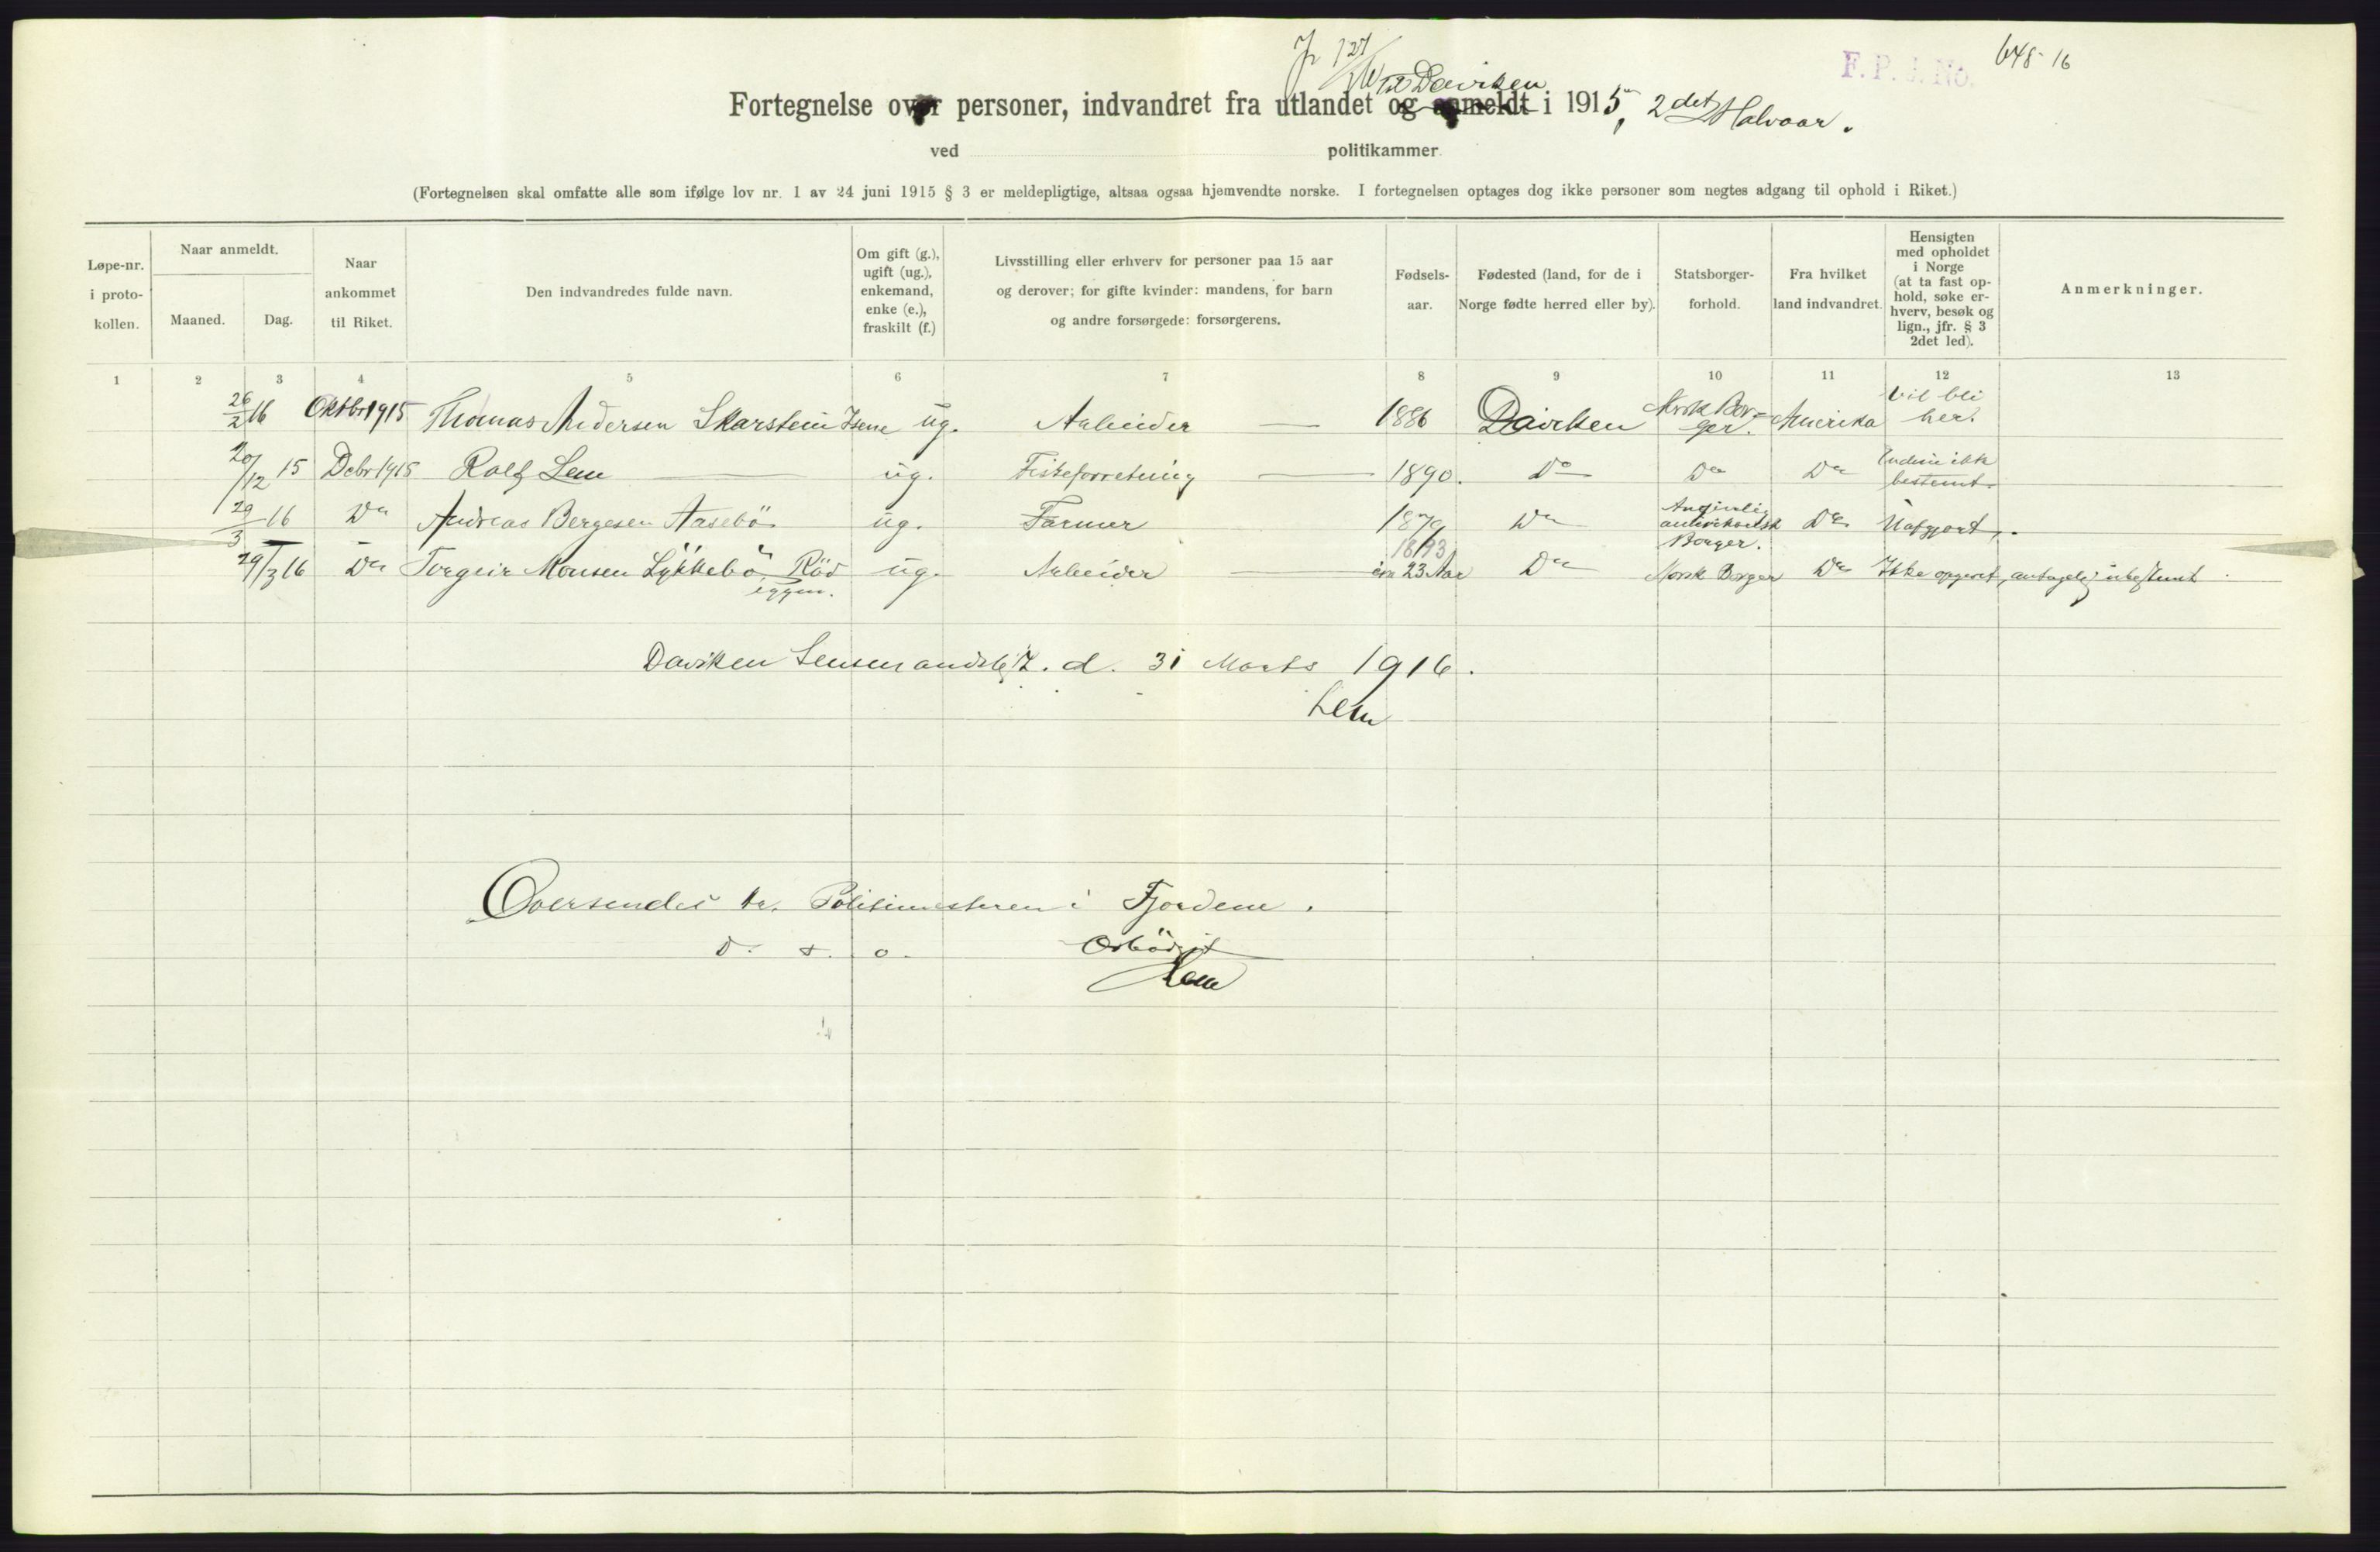 Jr 127/16
F. P. J. No. 648-16
til Daviken
Fortegnelse over personer, indvandret fra utlandet og anmeldt i 1915, 2det Halvaar.
ved politikammer
(Fortegnelsen skal omfatte alle som ifølge lov nr. 1 av 24 juni 1915 § 3 er meldepligtige, altsaa ogsaa hjemvendte norske. I fortegnelsen optages dog ikke personer som negtes adgang til ophold i Riket.)
Løpe-nr.
i proto-
kollen.
Naar anmeldt.
Maaned. Dag.
Naar
ankommet
til Riket.
Den indvandredes fulde navn.
Om gift (g.),
ugift (ug.),
enkemand,
enke (e.),
fraskilt (f.)
Livsstilling eller erhverv for personer paa 15 aar
og derover; for gifte kvinder: mandens, for barn
og andre forsørgede: forsørgerens.
Fødsels-
aar.
Fødested (land, for de i
Norge fødte herred eller by).
Statsborger-
forhold.
Fra hvilket
land indvandret.
Hensigten
med opholdet
i Norge
(at ta fast op-
hold, søke er-
hverv, besøk og
lign., jfr. § 3
2det led).
Anmerkninger.
1 2 3 4 5 6 7 8 9 10 11 12 13
26/2 16 Oktbr 1915 Thomas Andersen Skarstein Isene ug. Arbeider 1886 Daviken Norsk Bor-
ger. Amerika Vil bli
her.
20/12 15 Debr 1915 Rolf Lem ug. Fiskeforretning 1890. Do Do Do Endnu ikke
bestemt.
29/3 16 Do Andreas Bergesen Aasebö ug. Farmer 1879 Do Angivelig
amerikansk
Borger. Do Uafgjort.
29/3 16 Do Torgeir Monsen Lykkebö, Röd
eggen. ug. Arbeider 1893
ca 23 Aar Do Norsk Borger Do Ikke opgivet, antagelig ubestemt.
Daviken Lensmandsbest. d. 31 Marts 1916.
Lem
Oversendes hr. Politimesteren i Fjordene.
D. s. o.
Ærbödigst
Lem